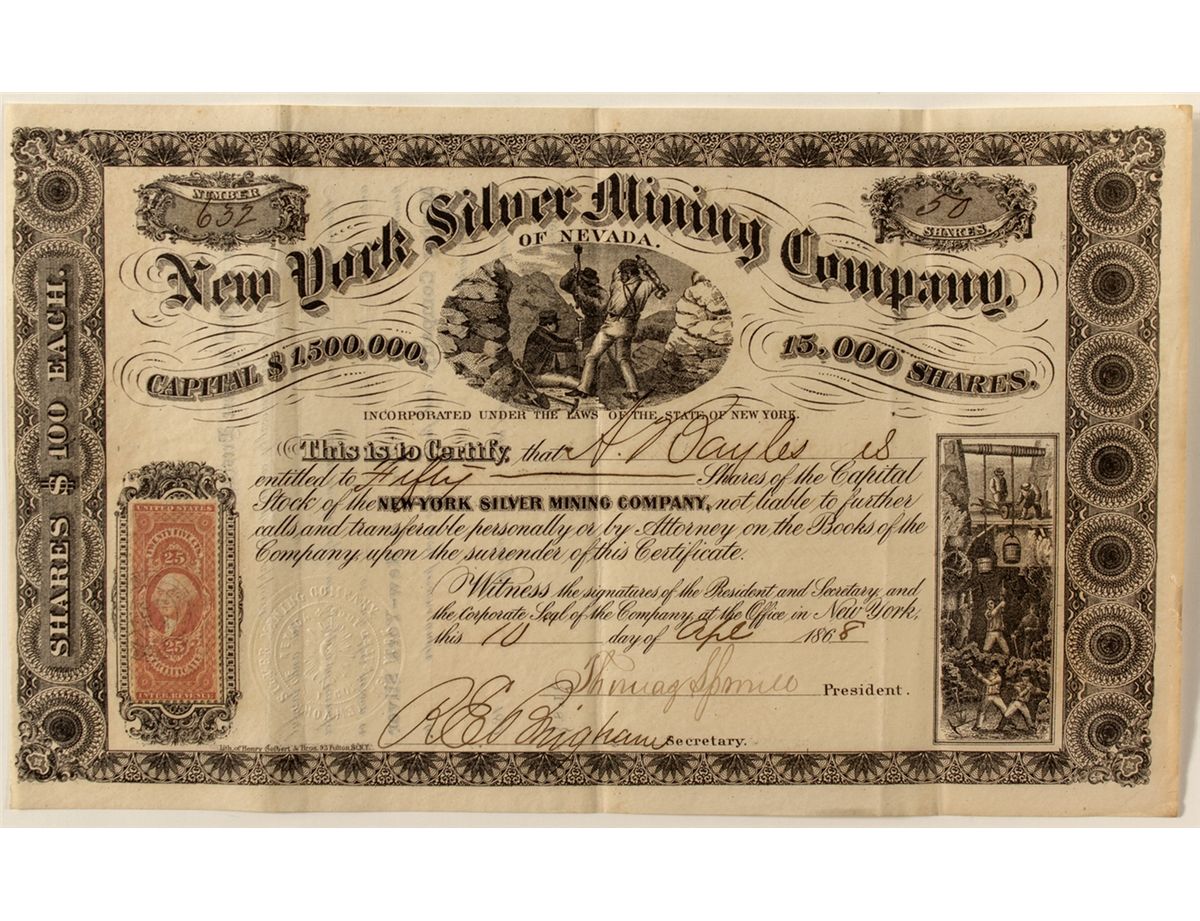 NUMBER
632
50
SHARES.
New York Silver Mining Company.
OF NEVADA.
CAPITAL $1,500,000,
15,000 SHARES.
INCORPORATED UNDER THE LAWS OF THE STATE OF NEW YORK.
SHARES $ 100 EACH.
This is to Certify, that A. Bayles is
entitled to Fifty Shares of the Capital
Stock of the NEW-YORK SILVER MINING COMPANY, not liable to further
calls, and transferable personally or by Attorney on the Books of the
Company, upon the surrender of this Certificate.
Witness the signatures of the President and Secretary, and
the Corporate Seal of the Company, at the Office in New York,
this 10 day of Apl 1868
Thomas President.
R. E. Brigham Secretary.
UNITED STATES
25
25
CERTIFICATE
INTER. REVENUE
Lith. of Henry Seibert & Bros. 93 Fulton St. N.Y.